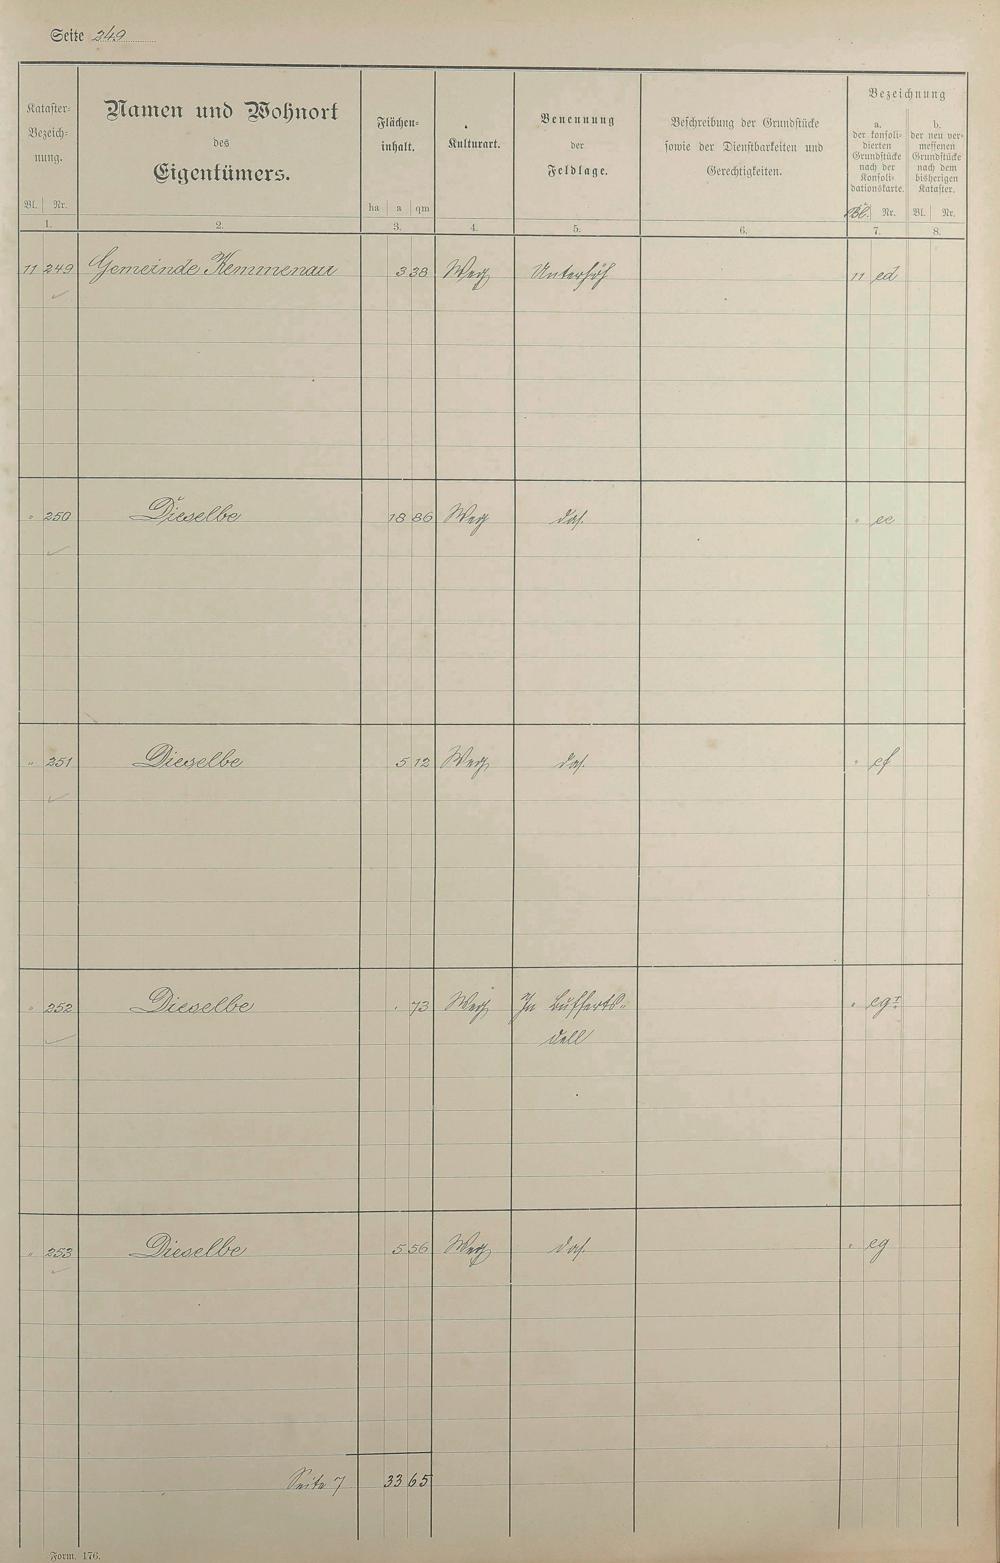 Seite 249
Kataster-
Bezeich-
nung.
Bl. Nr.
1.
Namen und Wohnort
des
Eigentümers.
2.
Flächen-
inhalt.
ha a qm
3.
Kulturart.
4.
Benennung
der
Feldlage.
5.
Beschreibung der Grundstücke
sowie der Dienstbarkeiten und
Gerechtigkeiten.
6.
Bezeichnung
a.
der konsoli-
dierten
Grundstücke
nach der
Konsoli-
dationskarte.
Bl. Nr.
7.
b.
der neu ver-
messenen
Grundstücke
nach dem
bisherigen
Kataster.
Bl. Nr.
8.
11 249 Gemeinde Kemmenau 3 38 Weg Unterhöf 11 ed
" 250 Dieselbe 18 86 Weg das. " ee
" 251 Dieselbe 5 12 Weg das. " ef
" 252 Dieselbe . 73 Weg In Bufferts- " eg I
dell
" 253 Dieselbe 5 56 Weg das. " eg
Seite 7 33 65
Form. 176.